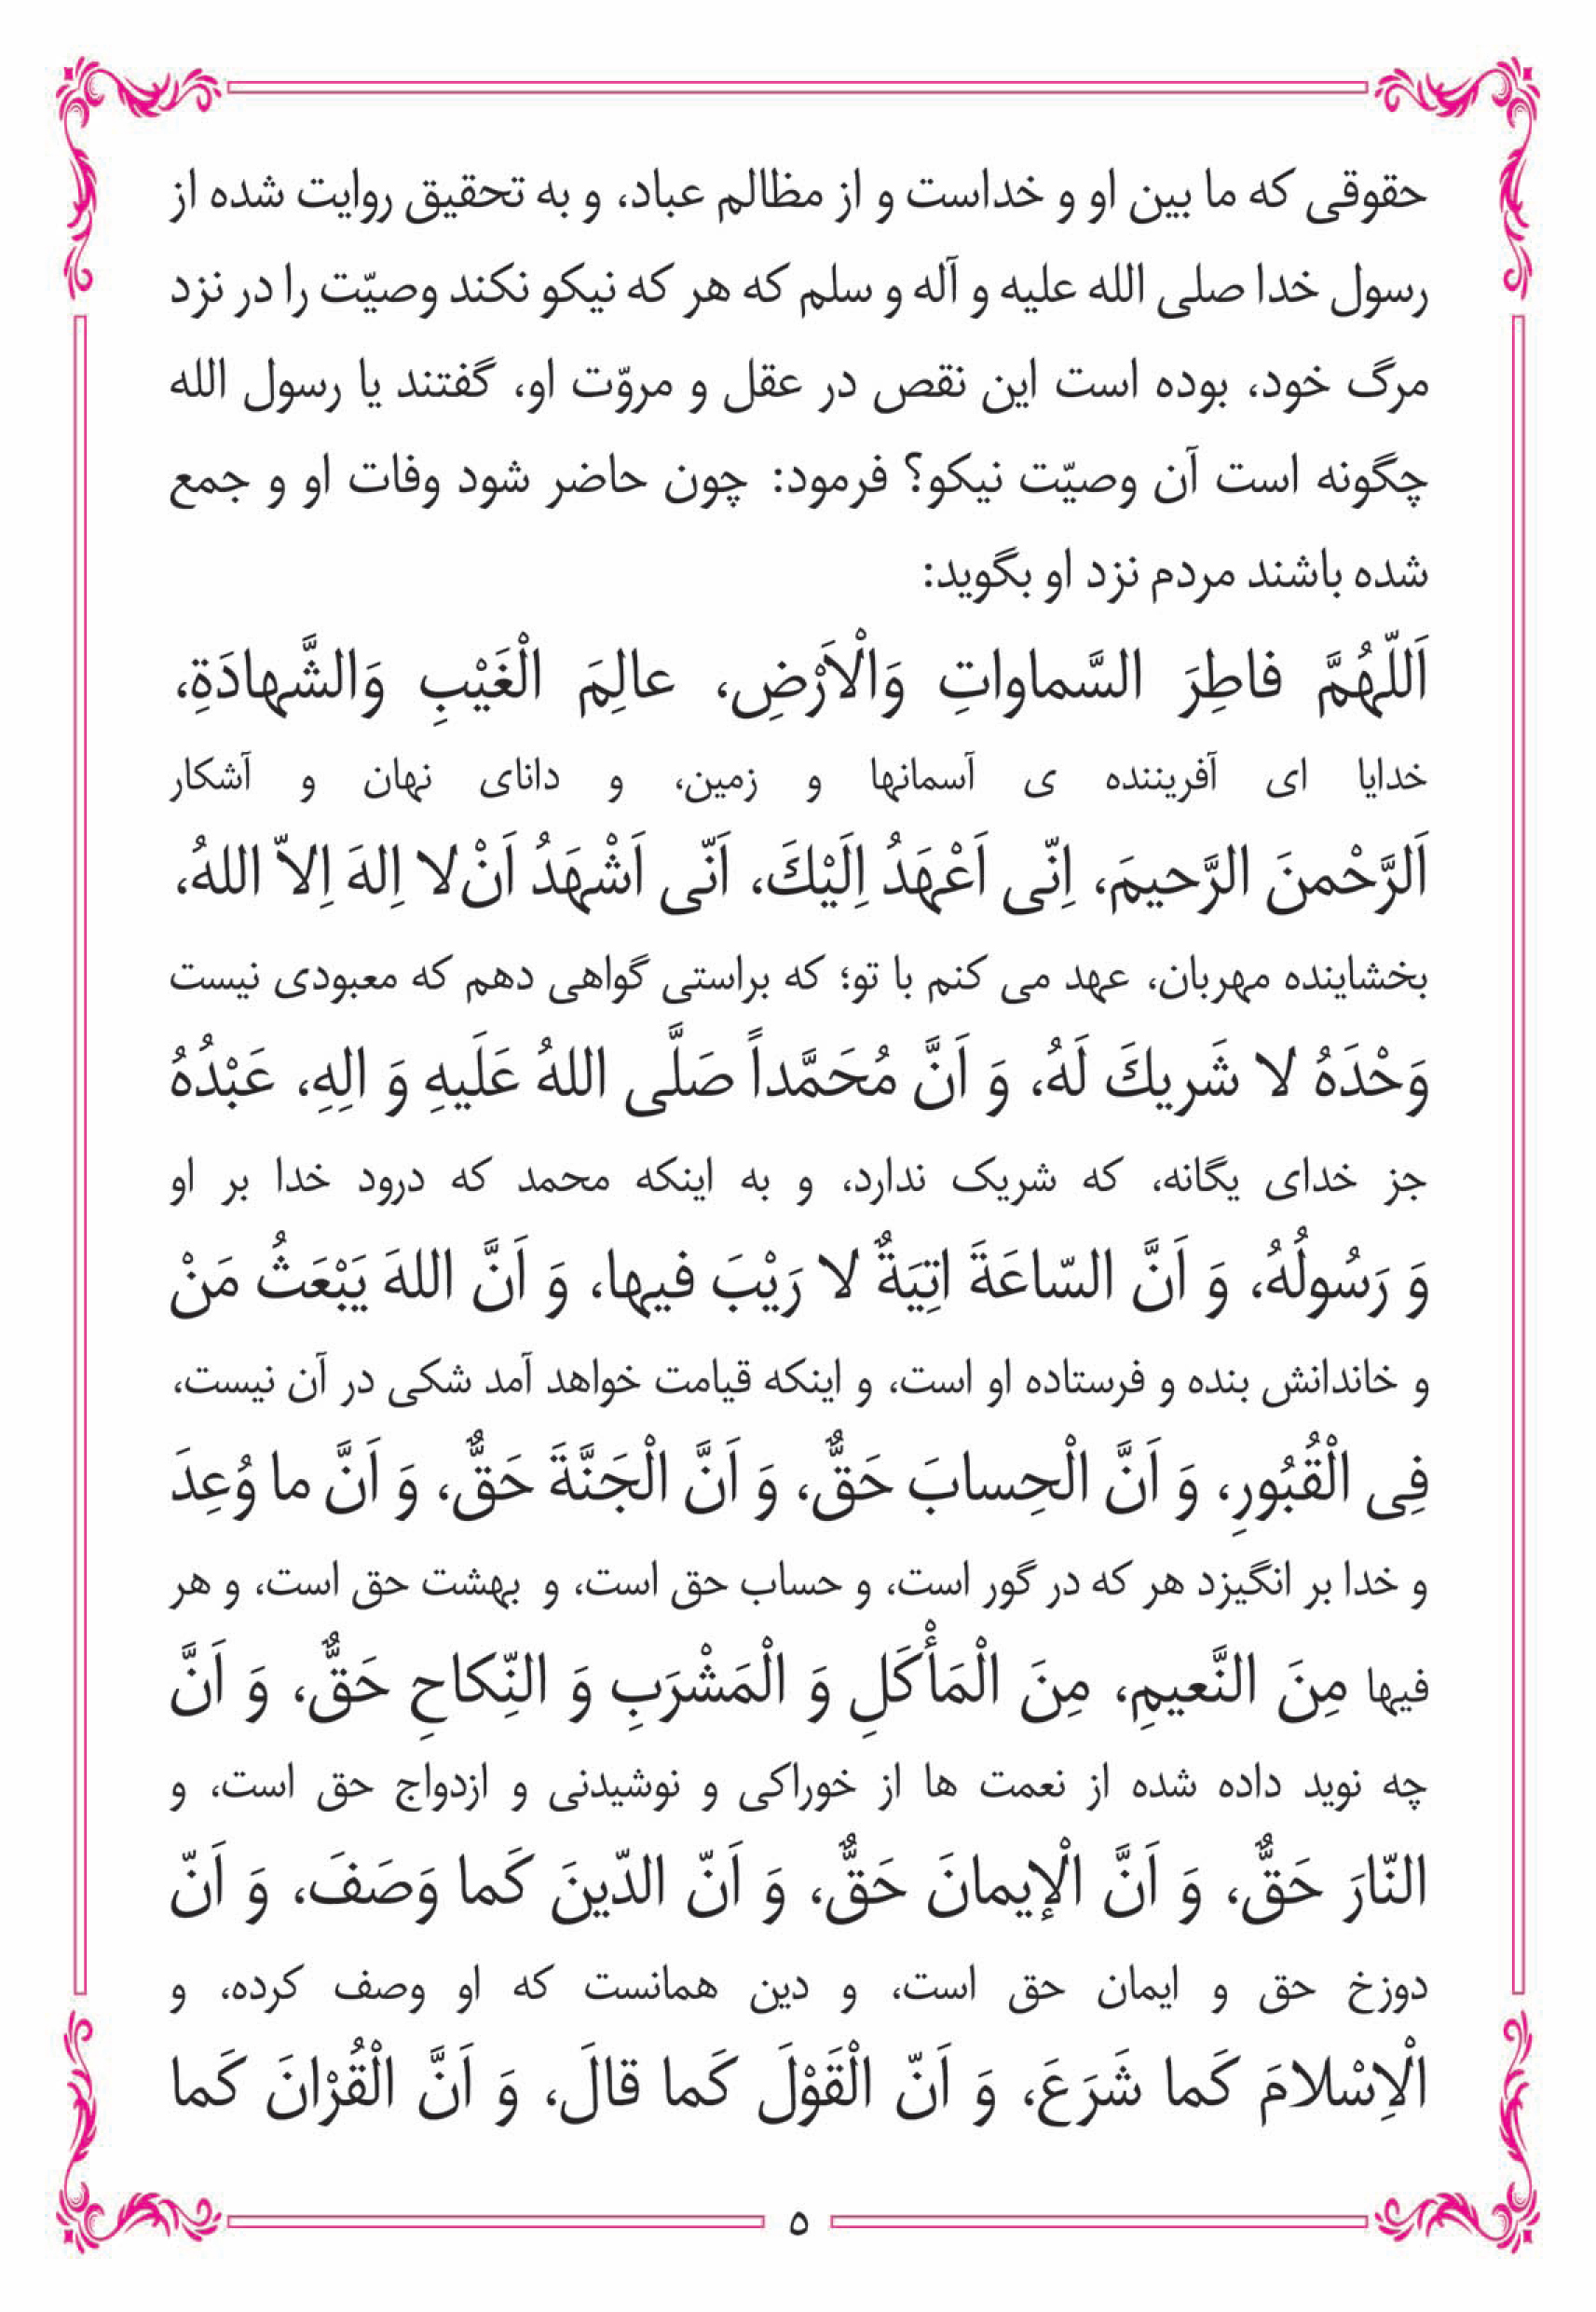 حقوقی که ما بین او و خداست و از مظالم عباد، و به تحقیق روایت شده از
رسول خدا صلی الله علیه و آله و سلم که هر که نیکو نکند وصیّت را در نزد
مرگ خود، بوده است این نقص در عقل و مروّت او، گفتند یا رسول الله
چگونه است آن وصیّت نیکو؟ فرمود: چون حاضر شود وفات او و جمع
شده باشند مردم نزد او بگوید:
اَللّهُمَّ فاطِرَ السَّماواتِ وَالْاَرْضِ، عالِمَ الْغَيْبِ وَالشَّهادَةِ،
خدایا ای آفریننده ی آسمانها و زمین، و دانای نهان و آشکار
اَلرَّحْمنَ الرَّحیمَ، اِنّی اَعْهَدُ اِلَيْكَ، اَنّی اَشْهَدُ اَنْ لا اِلهَ اِلاّ اللهُ،
بخشاینده مهربان، عهد می کنم با تو؛ که براستی گواهی دهم که معبودی نیست
وَحْدَهُ لا شَریكَ لَهُ، وَ اَنَّ مُحَمَّداً صَلَّی اللهُ عَلَیهِ وَ الِهِ، عَبْدُهُ
جز خدای یگانه، که شریک ندارد، و به اینکه محمد که درود خدا بر او
وَ رَسُولُهُ، وَ اَنَّ السّاعَةَ اتِيَةٌ لا رَيْبَ فیها، وَ اَنَّ اللهَ يَبْعَثُ مَنْ
و خاندانش بنده و فرستاده او است، و اینکه قیامت خواهد آمد شکی در آن نیست،
فِی الْقُبُورِ، وَ اَنَّ الْحِسابَ حَقٌّ، وَ اَنَّ الْجَنَّةَ حَقٌّ، وَ اَنَّ ما وُعِدَ
و خدا بر انگیزد هر که در گور است، و حساب حق است، و بهشت حق است، و هر
فیها مِنَ النَّعیمِ، مِنَ الْمَأْكَلِ وَ الْمَشْرَبِ وَ النِّكاحِ حَقٌّ، وَ اَنَّ
چه نوید داده شده از نعمت ها از خوراکی و نوشیدنی و ازدواج حق است، و
النّارَ حَقٌّ، وَ اَنَّ الْإیمانَ حَقٌّ، وَ اَنّ الدّینَ كَما وَصَفَ، وَ اَنّ
دوزخ حق و ایمان حق است، و دین همانست که او وصف کرده، و
الْاِسْلامَ كَما شَرَعَ، وَ اَنّ الْقَوْلَ كَما قالَ، وَ اَنَّ الْقُرْانَ كَما
۵